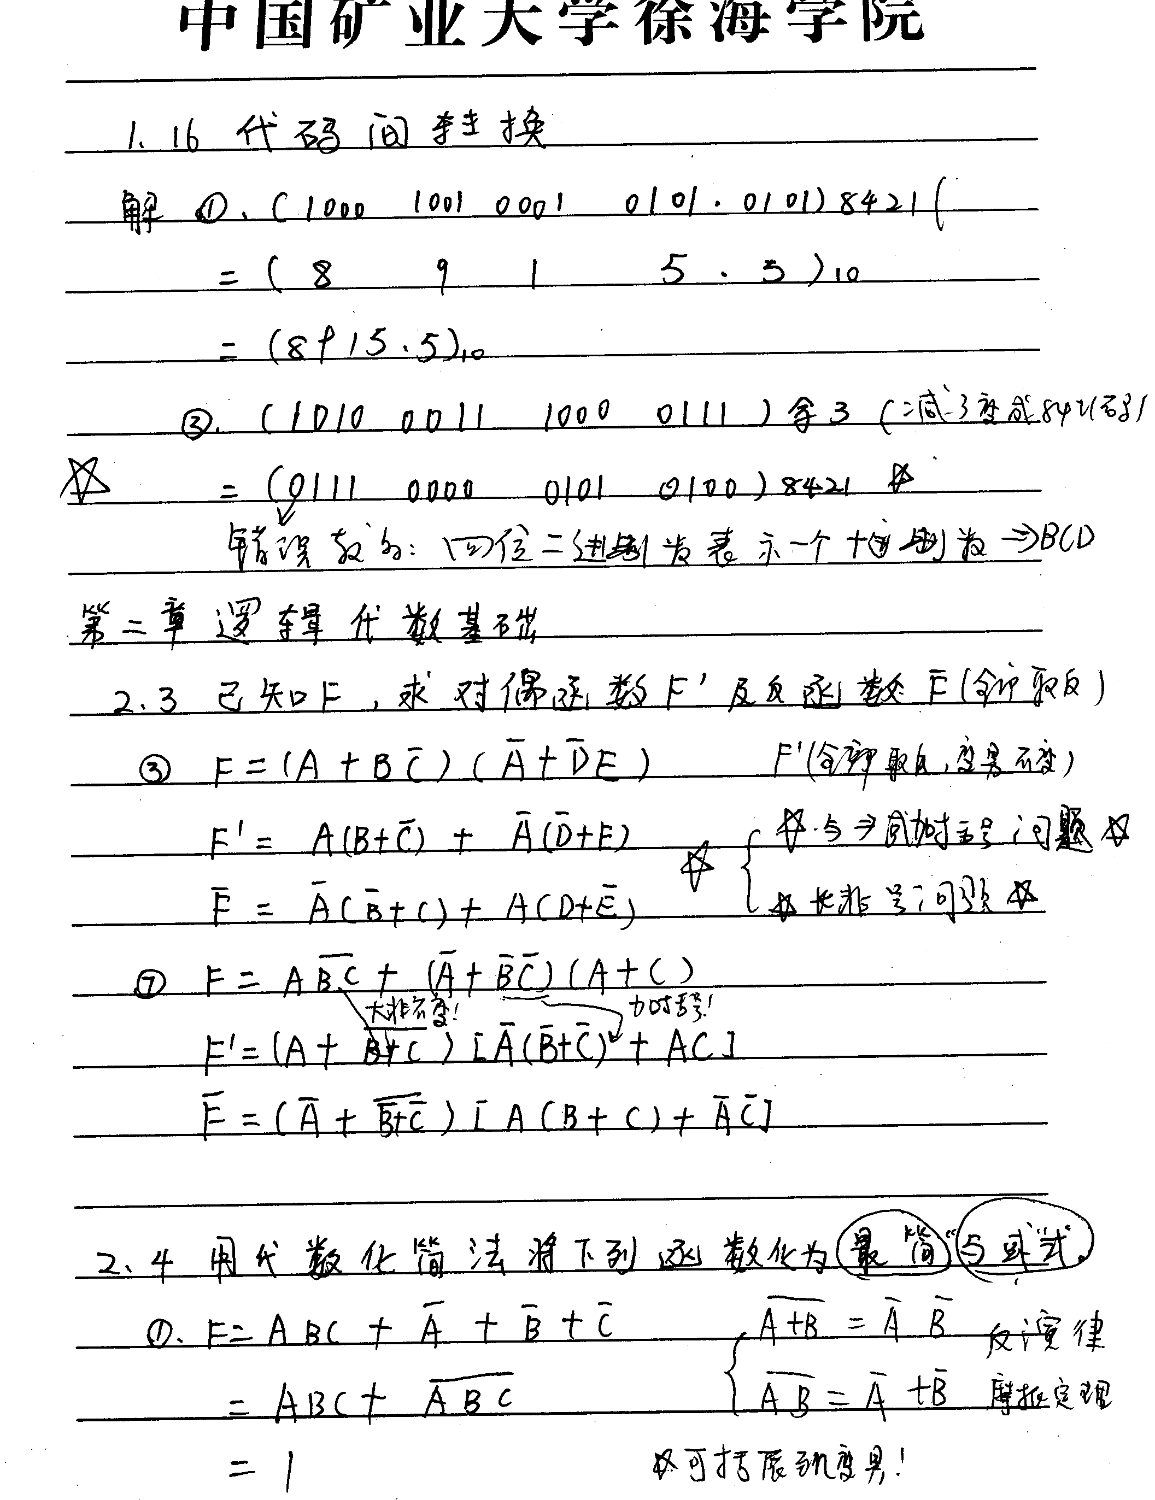 中国矿业大学徐海学院
1.16 代码间转换
解 ①. (1000 1001 0001 0101.0101)8421(
= (8 9 1 5.5)10
= (8915.5)10
③. (1010 0011 1000 0111)余3 (减3变成8421码)
☆ = (0111 0000 0101 0100)8421 ☆
错误 四位二进制数表示一个十进制数⇒BCD
第二章 逻辑代数基础
2.3 已知F,求对偶函数F'及反函数F̅(全部取反)
③ F=(A+BC̅)(A̅+D̅E) F'(全部取反,变量不变)
F'= A(B+C̅) + A̅(D̅+E) ☆ { ☆.与→或加括号问题☆
F̅ = A̅(B̅+C)+A(D+E̅) ☆ 长非号问题 ☆
⑦ F= A B̅C̅ + (A̅+B̅C̅)(A+C)
大非不变! 加括号!
F'=(A+ B̅+̅C̅)[A̅(B̅+C̅)+AC]
F̅=(A̅+B̅+C̅)[A(B+C)+A̅C̅]
2.4 用代数化简法将下列函数化为最简“与或式”.
①. F= ABC + A̅ + B̅ + C̅ { A̅+̅B̅ = A̅ B̅ 反演律
= ABC+ A̅B̅C̅ A̅B̅ = A̅+B̅ 摩根定理
= 1 ☆可拓展到n变量!